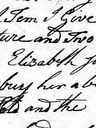 Item I Give
ture and Two
Elizabeth Jo
bury her a b
and the